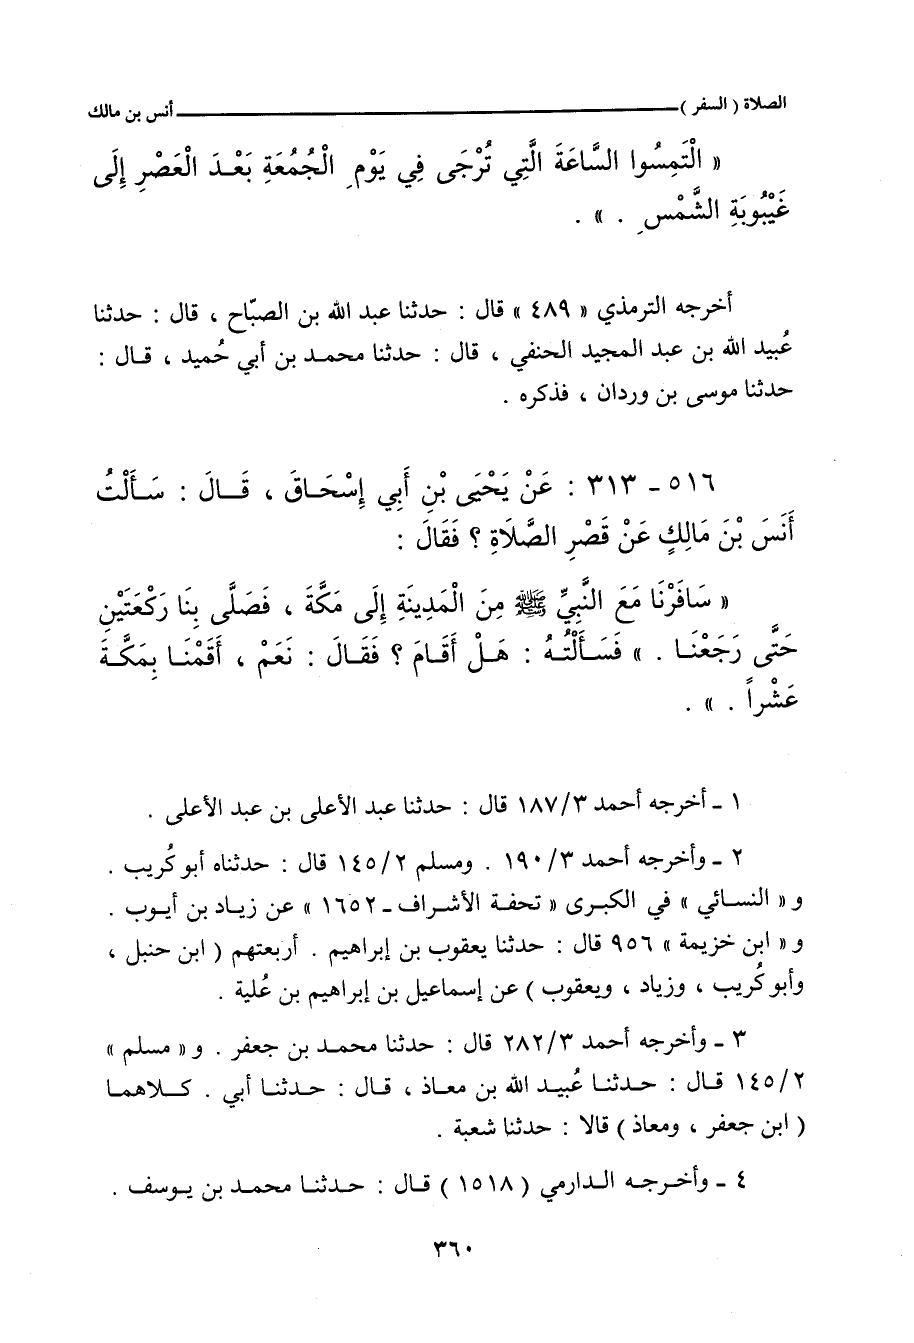 الصلاة ( السفر ) ــــــــــــ أنس بن مالك
« الْتَمِسُوا السَّاعَةَ الَّتِي تُرْجَى فِي يَوْمِ الْجُمُعَةِ بَعْدَ الْعَصْرِ إِلَى
غَيْبُوبَةِ الشَّمْسِ . » .
أخرجه الترمذي « ٤٨٩ » قال : حدثنا عبد الله بن الصبّاح ، قال : حدثنا
عُبيد الله بن عبد المجيد الحنفي ، قال : حدثنا محمد بن أبي حُميد ، قال :
حدثنا موسى بن وردان ، فذكره .
٥١٦ - ٣١٣ : عَنْ يَحْيَى بْنِ أَبِي إِسْحَاقَ ، قَالَ : سَأَلْتُ
أَنَسَ بْنَ مَالِكٍ عَنْ قَصْرِ الصَّلَاةِ ؟ فَقَالَ :
« سَافَرْنَا مَعَ النَّبِيِّ ﷺ مِنَ الْمَدِينَةِ إِلَى مَكَّةَ ، فَصَلَّى بِنَا رَكْعَتَيْنِ
حَتَّى رَجَعْنَا . » فَسَأَلْتُهُ : هَلْ أَقَامَ ؟ فَقَالَ : نَعَمْ ، أَقَمْنَا بِمَكَّةَ
عَشْراً . » .
١ - أخرجه أحمد ١٨٧/٣ قال : حدثنا عبد الأعلى بن عبد الأعلى .
٢ - وأخرجه أحمد ١٩٠/٣ . ومسلم ١٤٥/٢ قال : حدثناه أبو كُريب .
و « النسائي » في الكبرى « تحفة الأشراف - ١٦٥٢ » عن زياد بن أيوب .
و « ابن خزيمة » ٩٥٦ قال : حدثنا يعقوب بن إبراهيم . أربعتهم ( ابن حنبل ،
وأبو كُريب ، وزياد ، ويعقوب ) عن إسماعيل بن إبراهيم بن عُلية .
٣ - وأخرجه أحمد ٢٨٢/٣ قال : حدثنا محمد بن جعفر . و « مسلم »
١٤٥/٢ قال : حدثنا عُبيد الله بن معاذ ، قال : حدثنا أبي . كلاهما
( ابن جعفر ، ومعاذ ) قالا : حدثنا شعبة .
٤ - وأخرجه الدارمي ( ١٥١٨ ) قال : حدثنا محمد بن يوسف .
٣٦٠